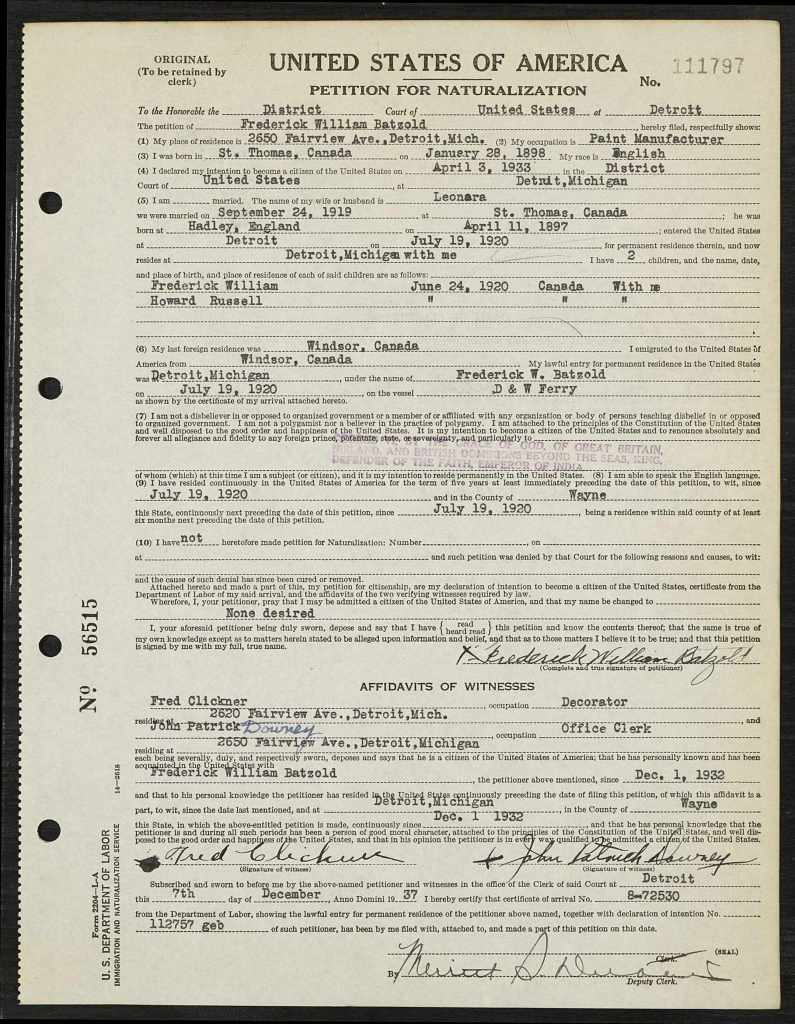 ORIGINAL
(To be retained by
clerk)
UNITED STATES OF AMERICA
PETITION FOR NATURALIZATION
No. 111797
To the Honorable the District Court of United States at Detroit
The petition of Frederick William Batzold, hereby filed, respectfully shows:
(1) My place of residence is 2650 Fairview Ave.,Detroit,Mich. (2) My occupation is Paint Manufacturer
(3) I was born in St. Thomas, Canada on January 28, 1898 My race is English
(4) I declared my intention to become a citizen of the United States on April 3, 1933 in the District
Court of United States, at Detroit,Michigan
(5) I am married. The name of my wife or husband is Leonara
we were married on September 24, 1919 at St. Thomas, Canada; he was
born at Hadley, England on April 11, 1897; entered the United States
at Detroit on July 19, 1920 for permanent residence therein, and now
resides at Detroit,Michigan with me I have 2 children, and the name, date,
and place of birth, and place of residence of each of said children are as follows:
Frederick William June 24, 1920 Canada With me
Howard Russell " " "
(6) My last foreign residence was Windsor, Canada I emigrated to the United States of
America from Windsor, Canada My lawful entry for permanent residence in the United States
was at Detroit,Michigan, under the name of Frederick W. Batzold
on July 19, 1920, on the vessel D & W Ferry
as shown by the certificate of my arrival attached hereto.
(7) I am not a disbeliever in or opposed to organized government or a member of or affiliated with any organization or body of persons teaching disbelief in or opposed
to organized government. I am not a polygamist nor a believer in the practice of polygamy. I am attached to the principles of the Constitution of the United States
and well disposed to the good order and happiness of the United States. It is my intention to become a citizen of the United States and to renounce absolutely and
forever all allegiance and fidelity to any foreign prince, potentate, state, or sovereignty, and particularly to
GRACE OF GOD, OF GREAT BRITAIN,
IRELAND, AND BRITISH DOMINIONS BEYOND THE SEAS, KING,
DEFENDER OF THE FAITH, EMPEROR OF INDIA
of whom (which) at this time I am a subject (or citizen), and it is my intention to reside permanently in the United States. (8) I am able to speak the English language.
(9) I have resided continuously in the United States of America for the term of five years at least immediately preceding the date of this petition, to wit, since
July 19, 1920 and in the County of Wayne
this State, continuously next preceding the date of this petition, since July 19, 1920, being a residence within said county of at least
six months next preceding the date of this petition.
(10) I have not heretofore made petition for Naturalization: Number , on
at and such petition was denied by that Court for the following reasons and causes, to wit:
and the cause of such denial has since been cured or removed.
Attached hereto and made a part of this, my petition for citizenship, are my declaration of intention to become a citizen of the United States, certificate from the
Department of Labor of my said arrival, and the affidavits of the two verifying witnesses required by law.
Wherefore, I, your petitioner, pray that I may be admitted a citizen of the United States of America, and that my name be changed to
None desired
I, your aforesaid petitioner being duly sworn, depose and say that I have { read heard read } this petition and know the contents thereof; that the same is true of
my own knowledge except as to matters herein stated to be alleged upon information and belief, and that as to those matters I believe it to be true; and that this petition
is signed by me with my full, true name.
X Frederick William Batzold
(Complete and true signature of petitioner)
AFFIDAVITS OF WITNESSES
Fred Clickner, occupation Decorator
residing at 2620 Fairview Ave.,Detroit,Mich. and
John Patrick Downey, occupation Office Clerk
residing at 2650 Fairview Ave.,Detroit,Michigan
each being severally, duly, and respectively sworn, deposes and says that he is a citizen of the United States of America; that he has personally known and has been
acquainted in the United States with
Frederick William Batzold, the petitioner above mentioned, since Dec. 1, 1932
and that to his personal knowledge the petitioner has resided in the United States continuously preceding the date of filing this petition, of which this affidavit is a
part, to wit, since the date last mentioned, and at Detroit,Michigan, in the County of Wayne
this State, in which the above-entitled petition is made, continuously since Dec. 1 1932, and that he has personal knowledge that the
petitioner is and during all such periods has been a person of good moral character, attached to the principles of the Constitution of the United States, and well dis-
posed to the good order and happiness of the United States, and that in his opinion the petitioner is in every way qualified to be admitted a citizen of the United States.
Fred Clickner X John Patrick Downey
(Signature of witness) (Signature of witness)
Subscribed and sworn to before me by the above-named petitioner and witnesses in the office of the Clerk of said Court at Detroit
this 7th day of December, Anno Domini 1937 I hereby certify that certificate of arrival No. 8-72530
from the Department of Labor, showing the lawful entry for permanent residence of the petitioner above named, together with declaration of intention No.
112757 geb of such petitioner, has been by me filed with, attached to, and made a part of this petition on this date.
Clerk. (SEAL)
By
Deputy Clerk.
Nº 56515
14-2618
Form 2204-L-A
U. S. DEPARTMENT OF LABOR
IMMIGRATION AND NATURALIZATION SERVICE